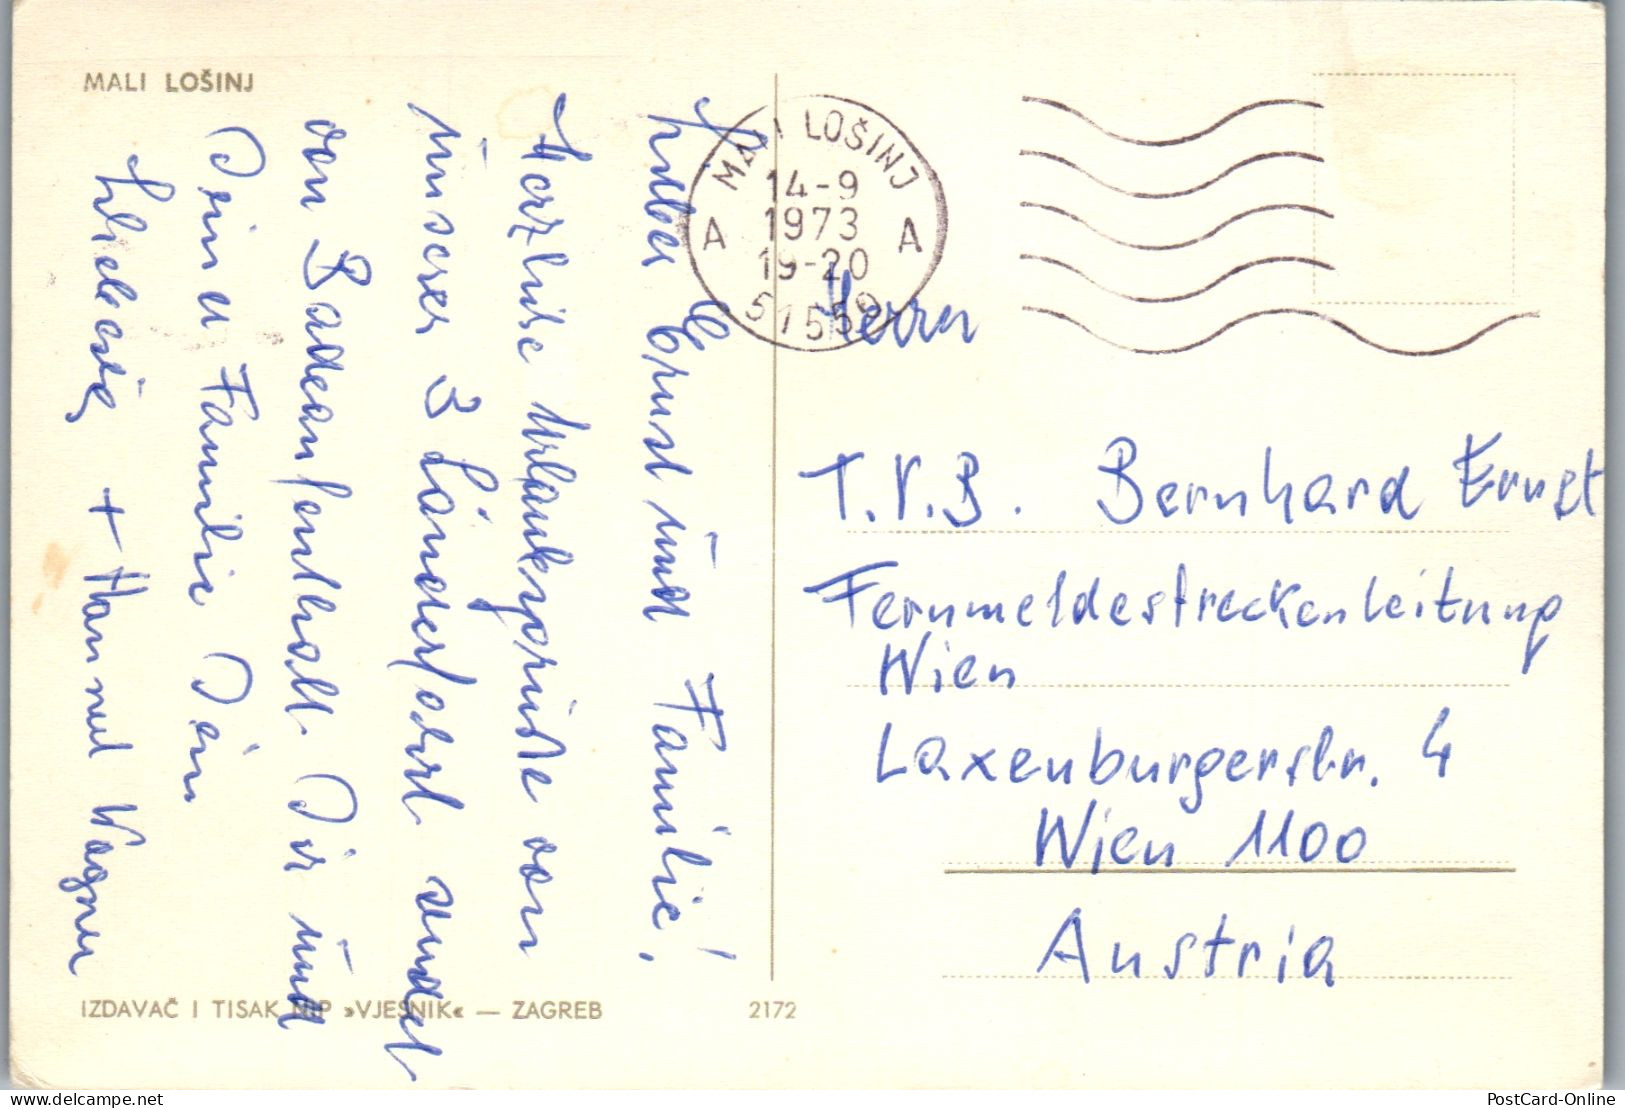 MALI LOŠINJ
Lieber Ernst und Familie!
Herzliche Urlaubsgrüße von
unserer 3 Länderfahrt sendet
vom Badeaufenthalt Dir und
Deiner Familie Dein
+ Hannerl Wagner
IZDAVAČ I TISAK NIP »VJESNIK« — ZAGREB
2172
MALI LOŠINJ
14-9
1973
19-20
A A
51550
Herrn
T.V.B. Bernhard Ernst
Fernmeldestreckenleitung
Wien
Laxenburgerstr. 4
Wien 1100
Austria
PostCard-Online
delcampe.net